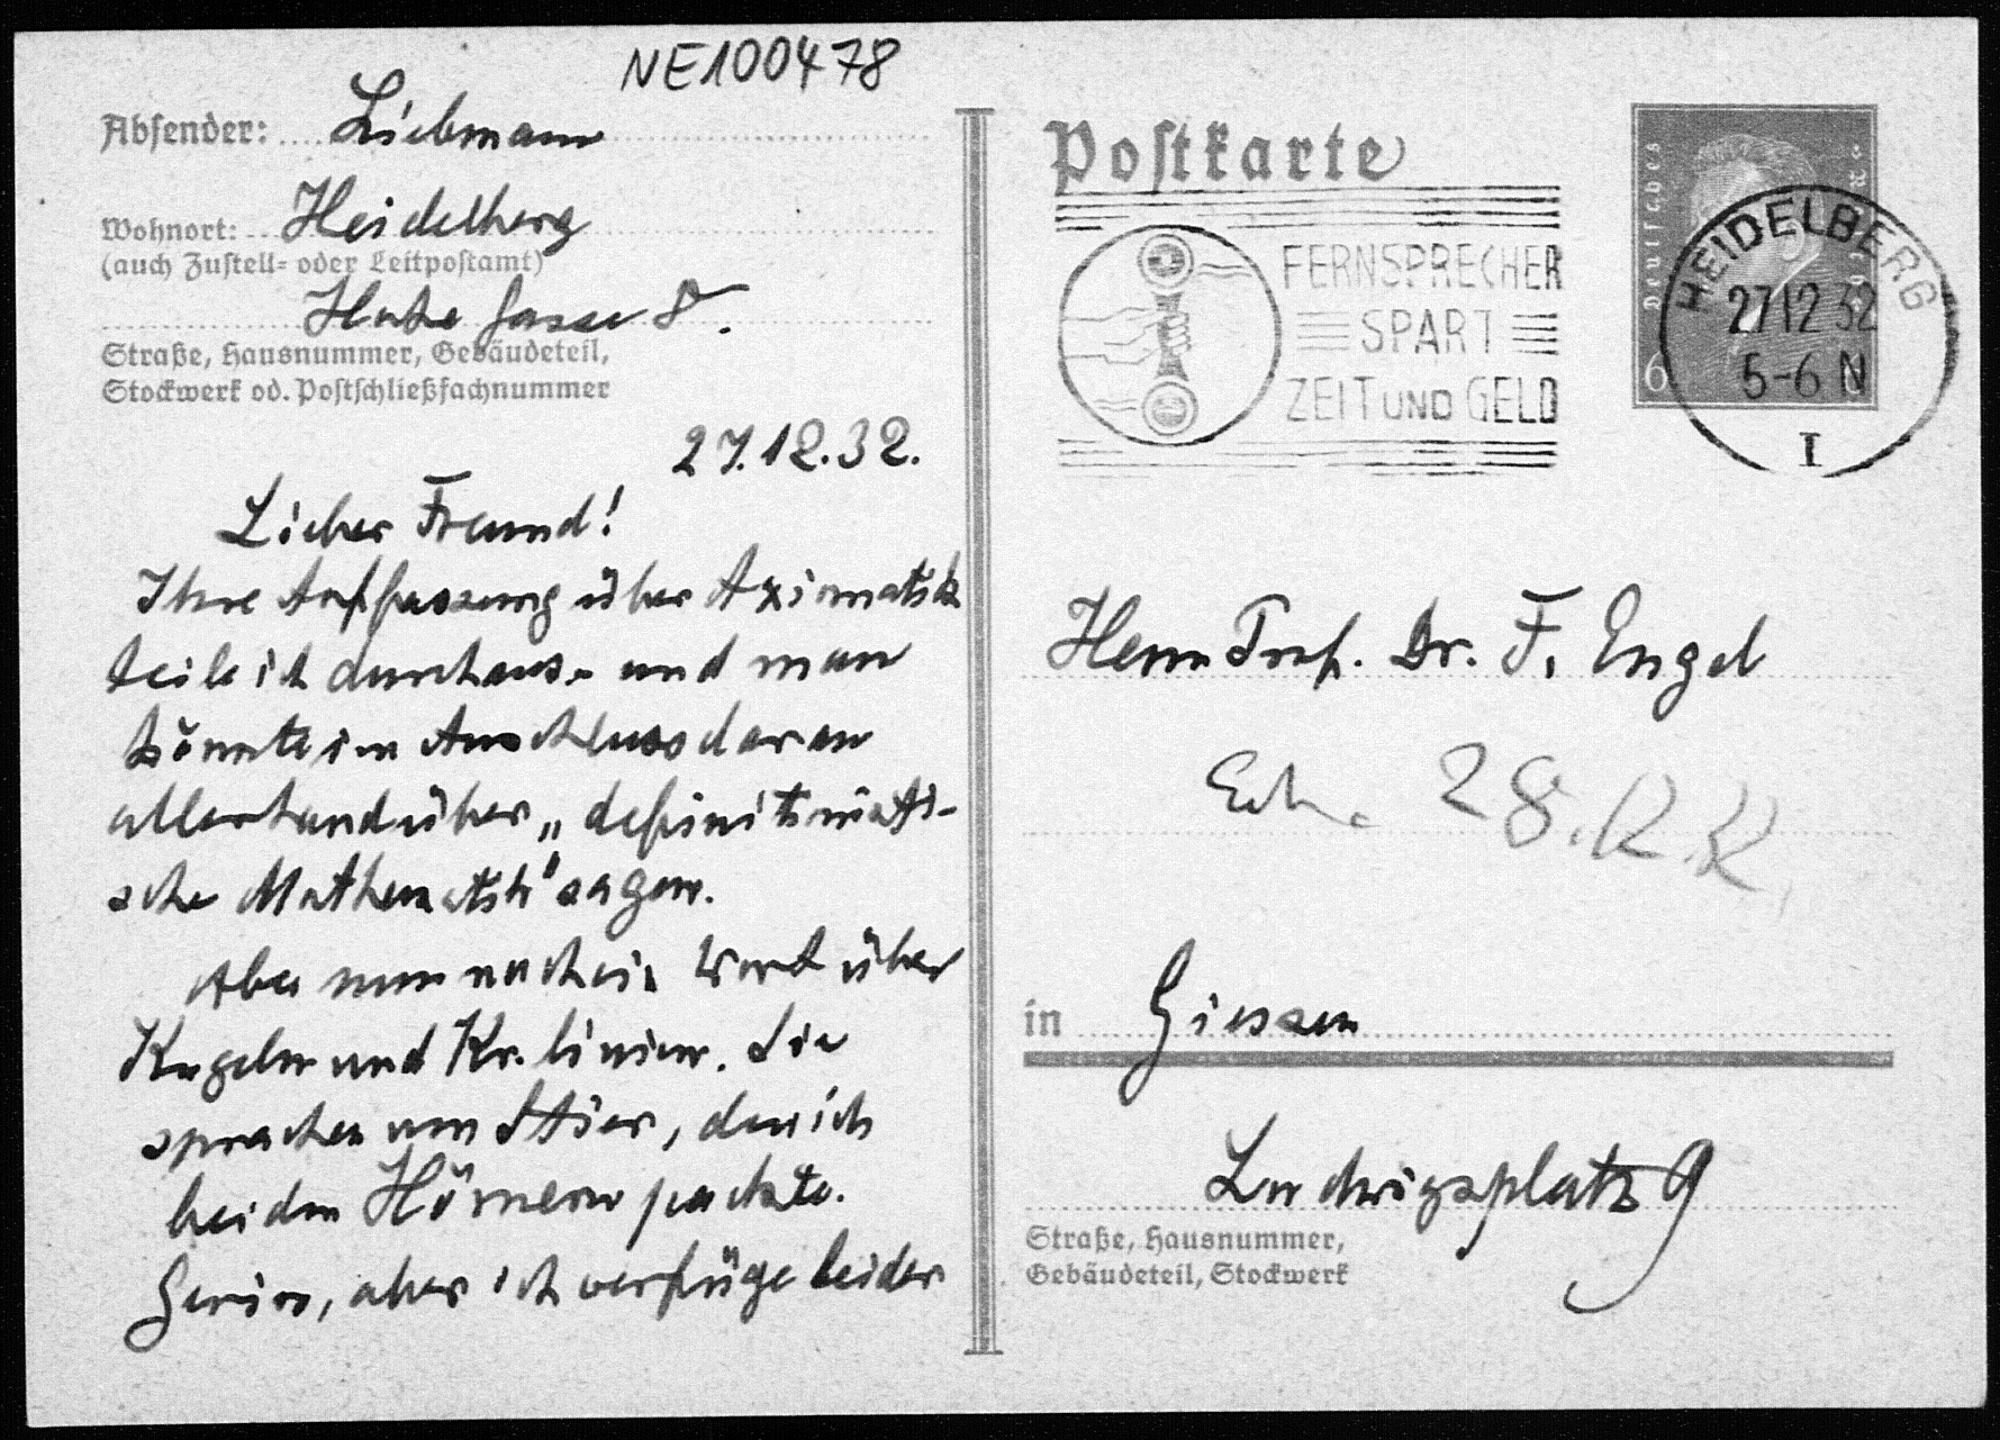 NE100478
Absender: Liebmann
Wohnort: Heidelberg
(auch Zustell- oder Leitpostamt)
Hohe Gasse 8.
Straße, Hausnummer, Gebäudeteil,
Stockwerk od. Postschließfachnummer
27.12.32.
Lieber Freund!
Ihre Auffassung über Axiomatik
teile ich durchaus - und man
könnte im Anschluss daran
allerhand über „definitivistische
sche Mathematik" sagen.
Aber nun noch ein Wort über
Kugeln und Kr. linien. Sie
sprachen vom Stier, den ich
bei den Hörnern packte.
Gewiss, aber ich verfüge leider
Postkarte
FERNSPRECHER
SPART
ZEIT UND GELD
Deutsches
6
HEIDELBERG
27 12 32
5-6 N
I
Herrn Prof. Dr. F. Engel
28.12.
in Giessen
Ludwigsplatz 9
Straße, Hausnummer,
Gebäudeteil, Stockwerk